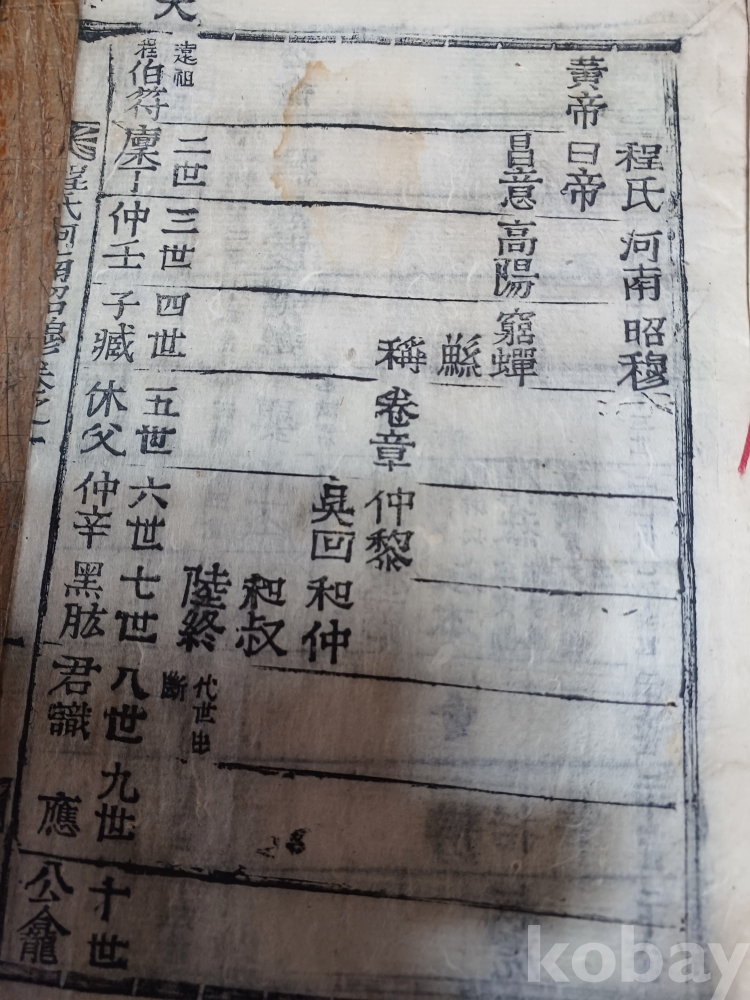 程氏河南昭穆
黃帝曰帝
昌意高陽窮蟬
鯀
稱卷章仲黎
吳回和仲
和叔
陸終
代世出
斷
遠祖
程伯符
二世
廩丁
三世
仲壬
四世
子臧
五世
休父
六世
仲辛
七世
黑肱
八世
君識
九世
應
十世
公龕
程氏河南昭穆卷之一
kobay